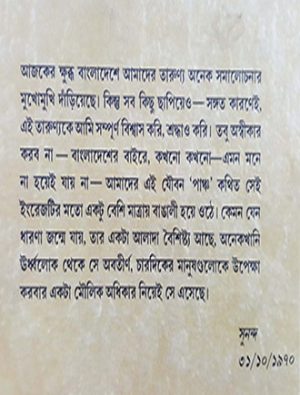 আজকের ক্ষুব্ধ বাংলাদেশে আমাদের তারুণ্য অনেক সমালোচনার
মুখোমুখি দাঁড়িয়েছে। কিন্তু সব কিছু ছাপিয়েও— সঙ্গত কারণেই,
এই তারুণ্যকে আমি সম্পূর্ণ বিশ্বাস করি, শ্রদ্ধাও করি। তবু অস্বীকার
করব না— বাংলাদেশের বাইরে, কখনো কখনো—এমন মনে
না হয়েই যায় না— আমাদের এই যৌবন ‘পাঞ্চ’ কথিত সেই
ইংরেজটির মতো একটু বেশি মাত্রায় বাঙালী হয়ে ওঠে। কেমন যেন
ধারণা জন্মে যায়, তার একটা আলাদা বৈশিষ্ট্য আছে, অনেকখানি
ঊর্ধ্বলোক থেকে সে অবতীর্ণ, চারদিকের মানুষগুলোকে উপেক্ষা
করবার একটা মৌলিক অধিকার নিয়েই সে এসেছে।
সুনন্দ
৩১/১০/১৯৭০